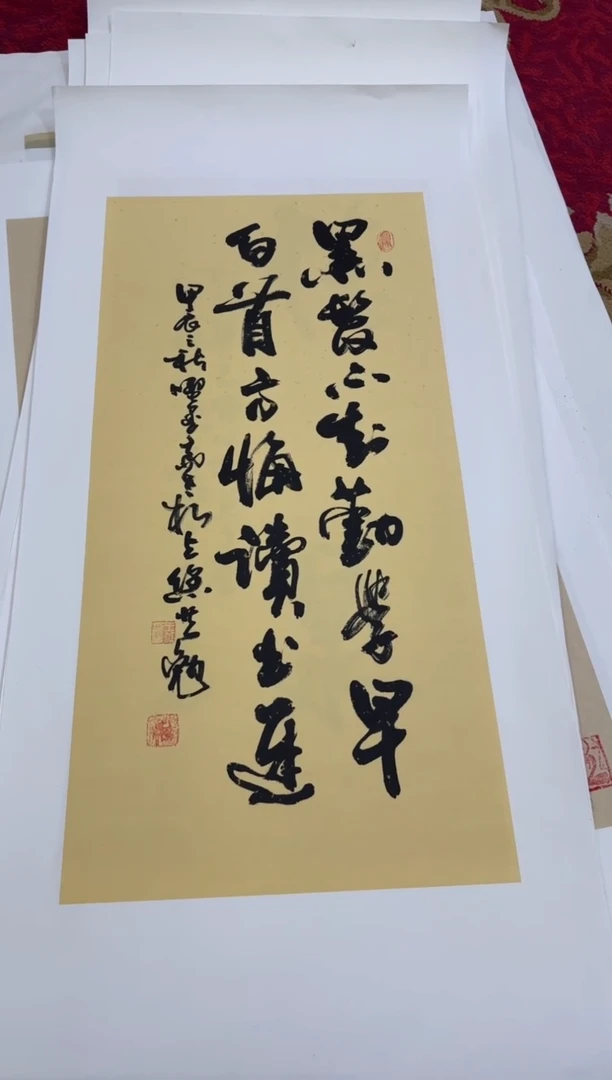 黑髮不知勤學早
白首方悔讀書遲
甲辰之秋